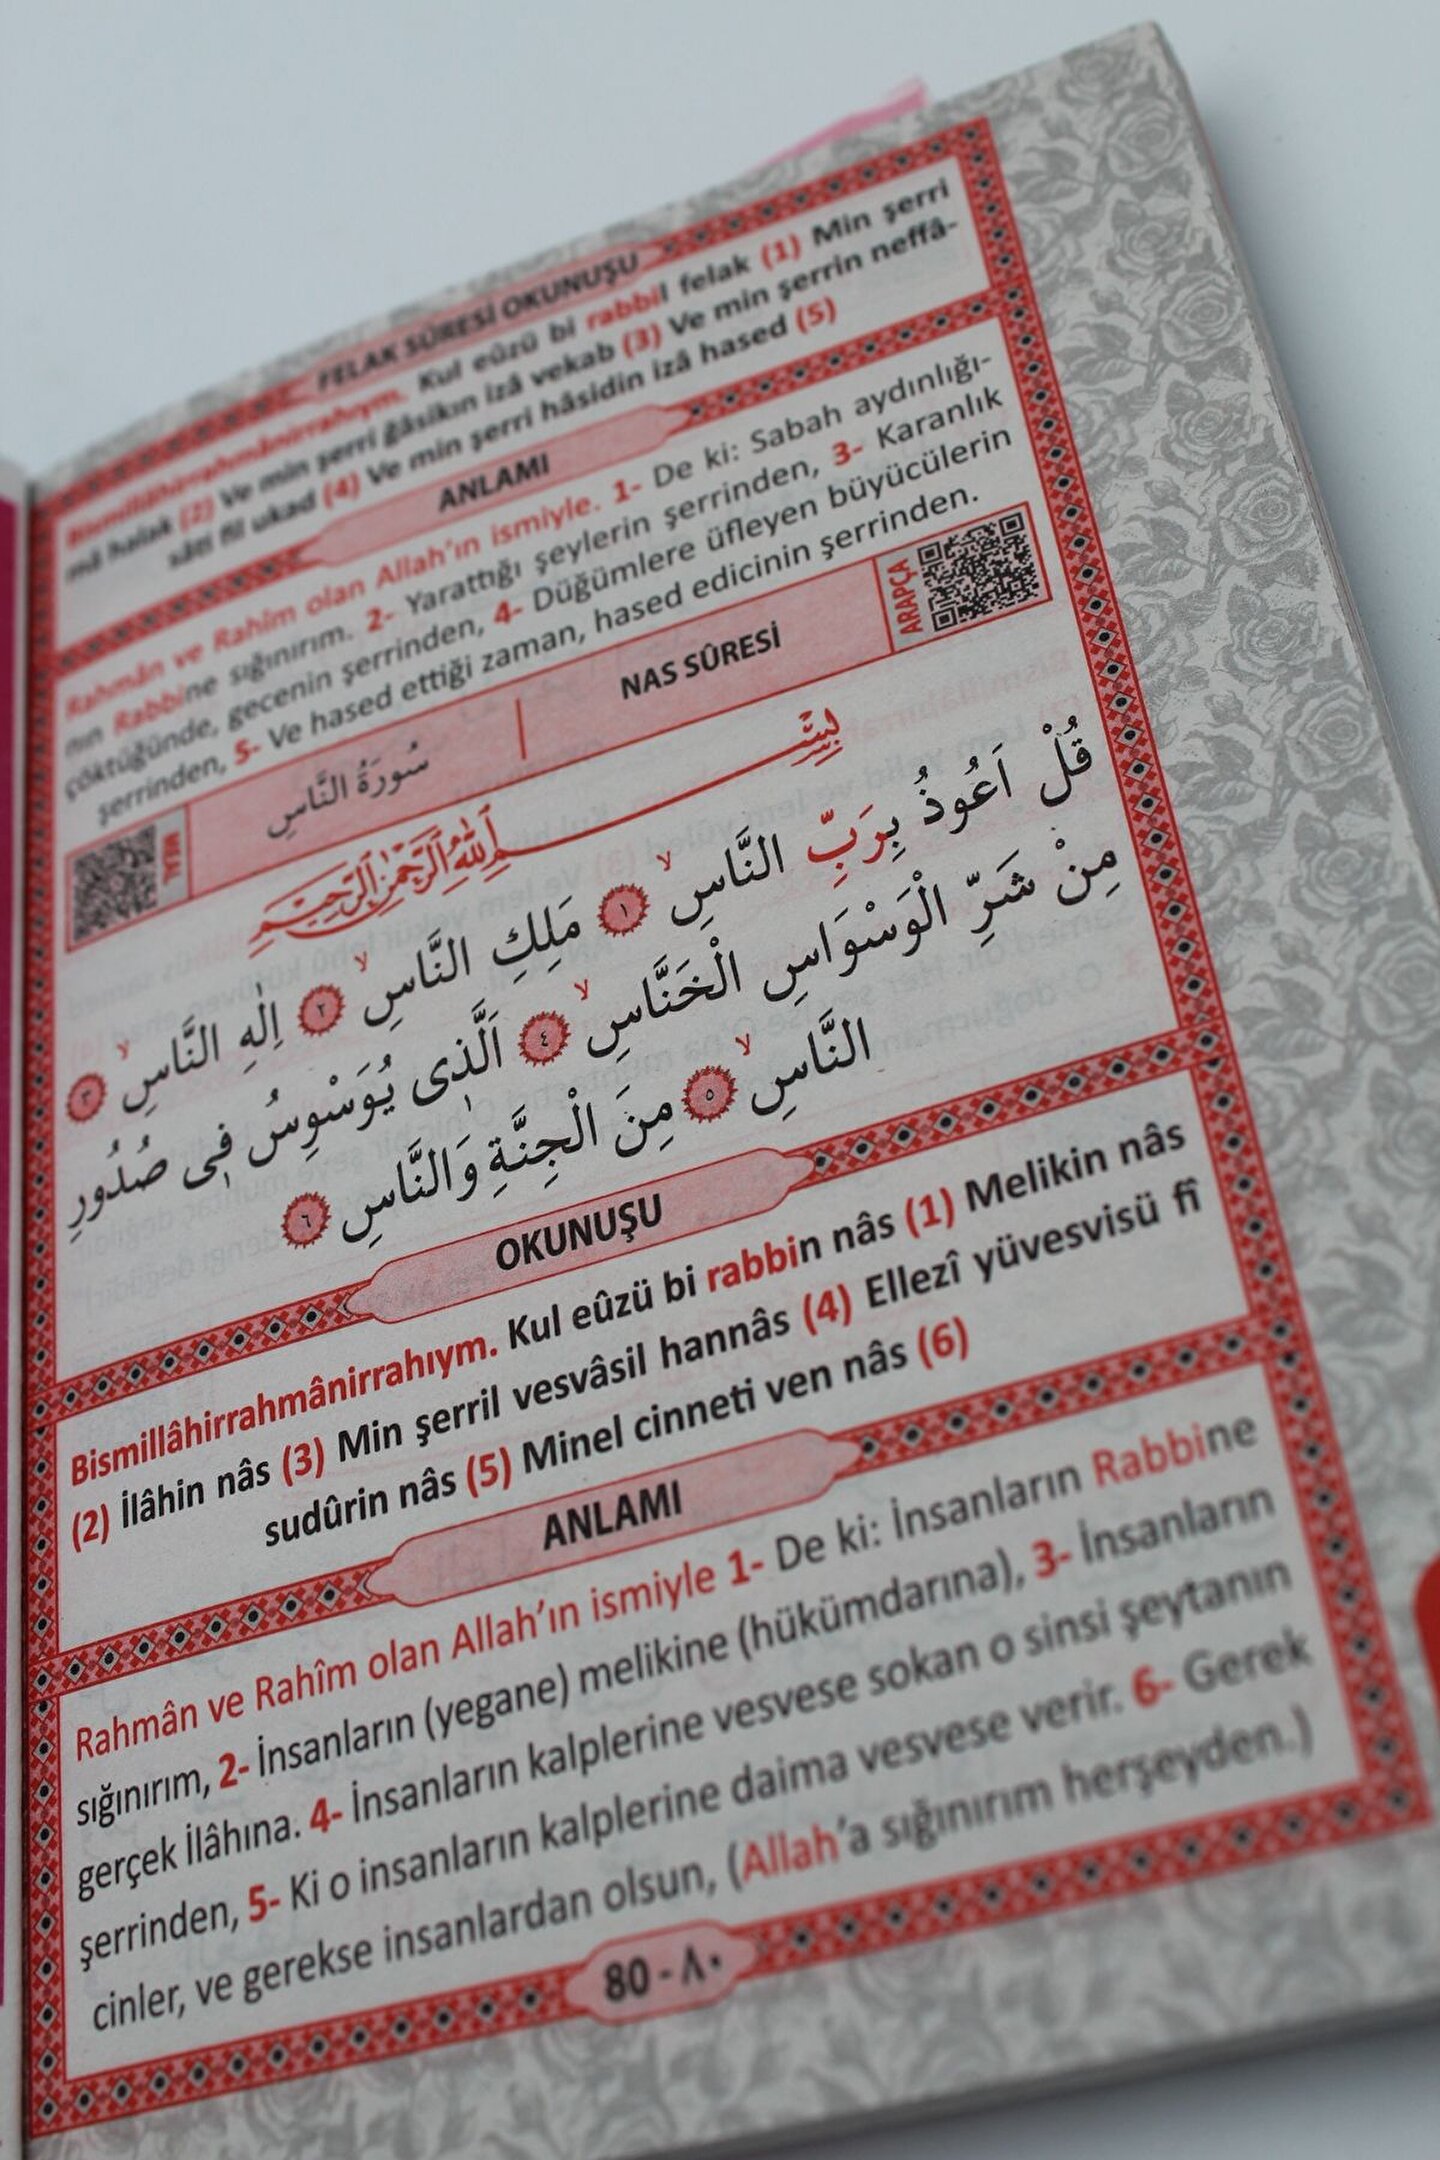 FELAK SÛRESİ OKUNUŞU
Bismillâhirrahmânirrahıym. Kul eûzü bi rabbil felak (1) Min şerri
mâ halak (2) Ve min şerri ğâsikın izâ vekab (3) Ve min şerrin neffâ-
sâti fil ukad (4) Ve min şerri hâsidin izâ hased (5)
ANLAMI
Rahmân ve Rahîm olan Allah'ın ismiyle. 1- De ki: Sabah aydınlığı-
nın Rabbine sığınırım. 2- Yarattığı şeylerin şerrinden, 3- Karanlık
çöktüğünde, gecenin şerrinden, 4- Düğümlere üfleyen büyücülerin
şerrinden, 5- Ve hased ettiği zaman, hased edicinin şerrinden.
سُورَةُ النَّاسِ NAS SÛRESİ ARAPÇA
بِسْمِ اللّٰهِ الرَّحْمٰنِ الرَّحِيمِ
قُلْ اَعُوذُ بِرَبِّ النَّاسِۙ ١ مَلِكِ النَّاسِۙ ٢ اِلٰهِ النَّاسِۙ ٣
مِنْ شَرِّ الْوَسْوَاسِ الْخَنَّاسِۙ ٤ اَلَّذٖى يُوَسْوِسُ فٖى صُدُورِ
النَّاسِۙ ٥ مِنَ الْجِنَّةِ وَالنَّاسِ ٦
OKUNUŞU
Bismillâhirrahmânirrahıym. Kul eûzü bi rabbin nâs (1) Melikin nâs
(2) İlâhin nâs (3) Min şerril vesvâsil hannâs (4) Ellezî yüvesvisü fî
sudûrin nâs (5) Minel cinneti ven nâs (6)
ANLAMI
Rahmân ve Rahîm olan Allah'ın ismiyle 1- De ki: İnsanların Rabbine
sığınırım, 2- İnsanların (yegane) melikine (hükümdarına), 3- İnsanların
gerçek İlâhına. 4- İnsanların kalplerine vesvese sokan o sinsi şeytanın
şerrinden, 5- Ki o insanların kalplerine daima vesvese verir. 6- Gerek
cinler, ve gerekse insanlardan olsun, (Allah'a sığınırım herşeyden.)
80 - ٨٠